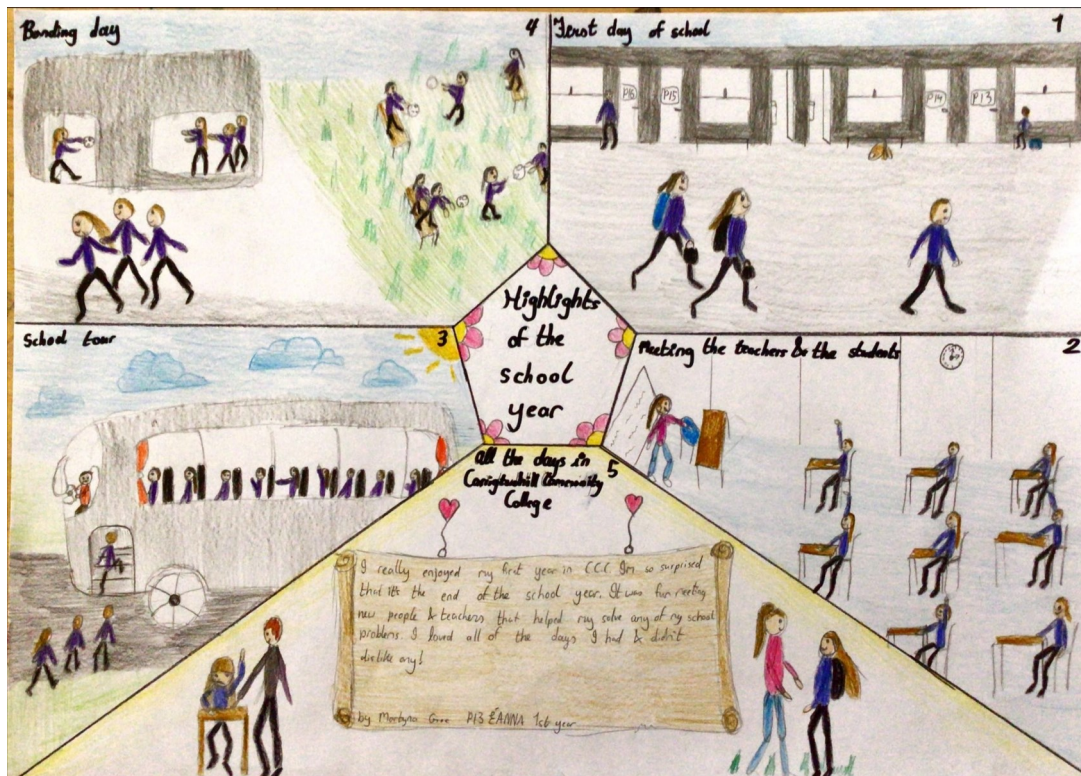 Bonding day
4
First day of school
1
P16
P15
P14
P13
Highlights
of the
school
year
School tour
3
Meeting the teachers & the students
2
All the days in
5
Community
College
I really enjoyed my first year in C.C.C Im so surprised
that it's the end of the school year. It was fun meeting
new people & teachers that helped my solve any of my school
problems. I loved all of the days I had & didn't
dislike any!
by Martyna P13 ÉANNA 1st year